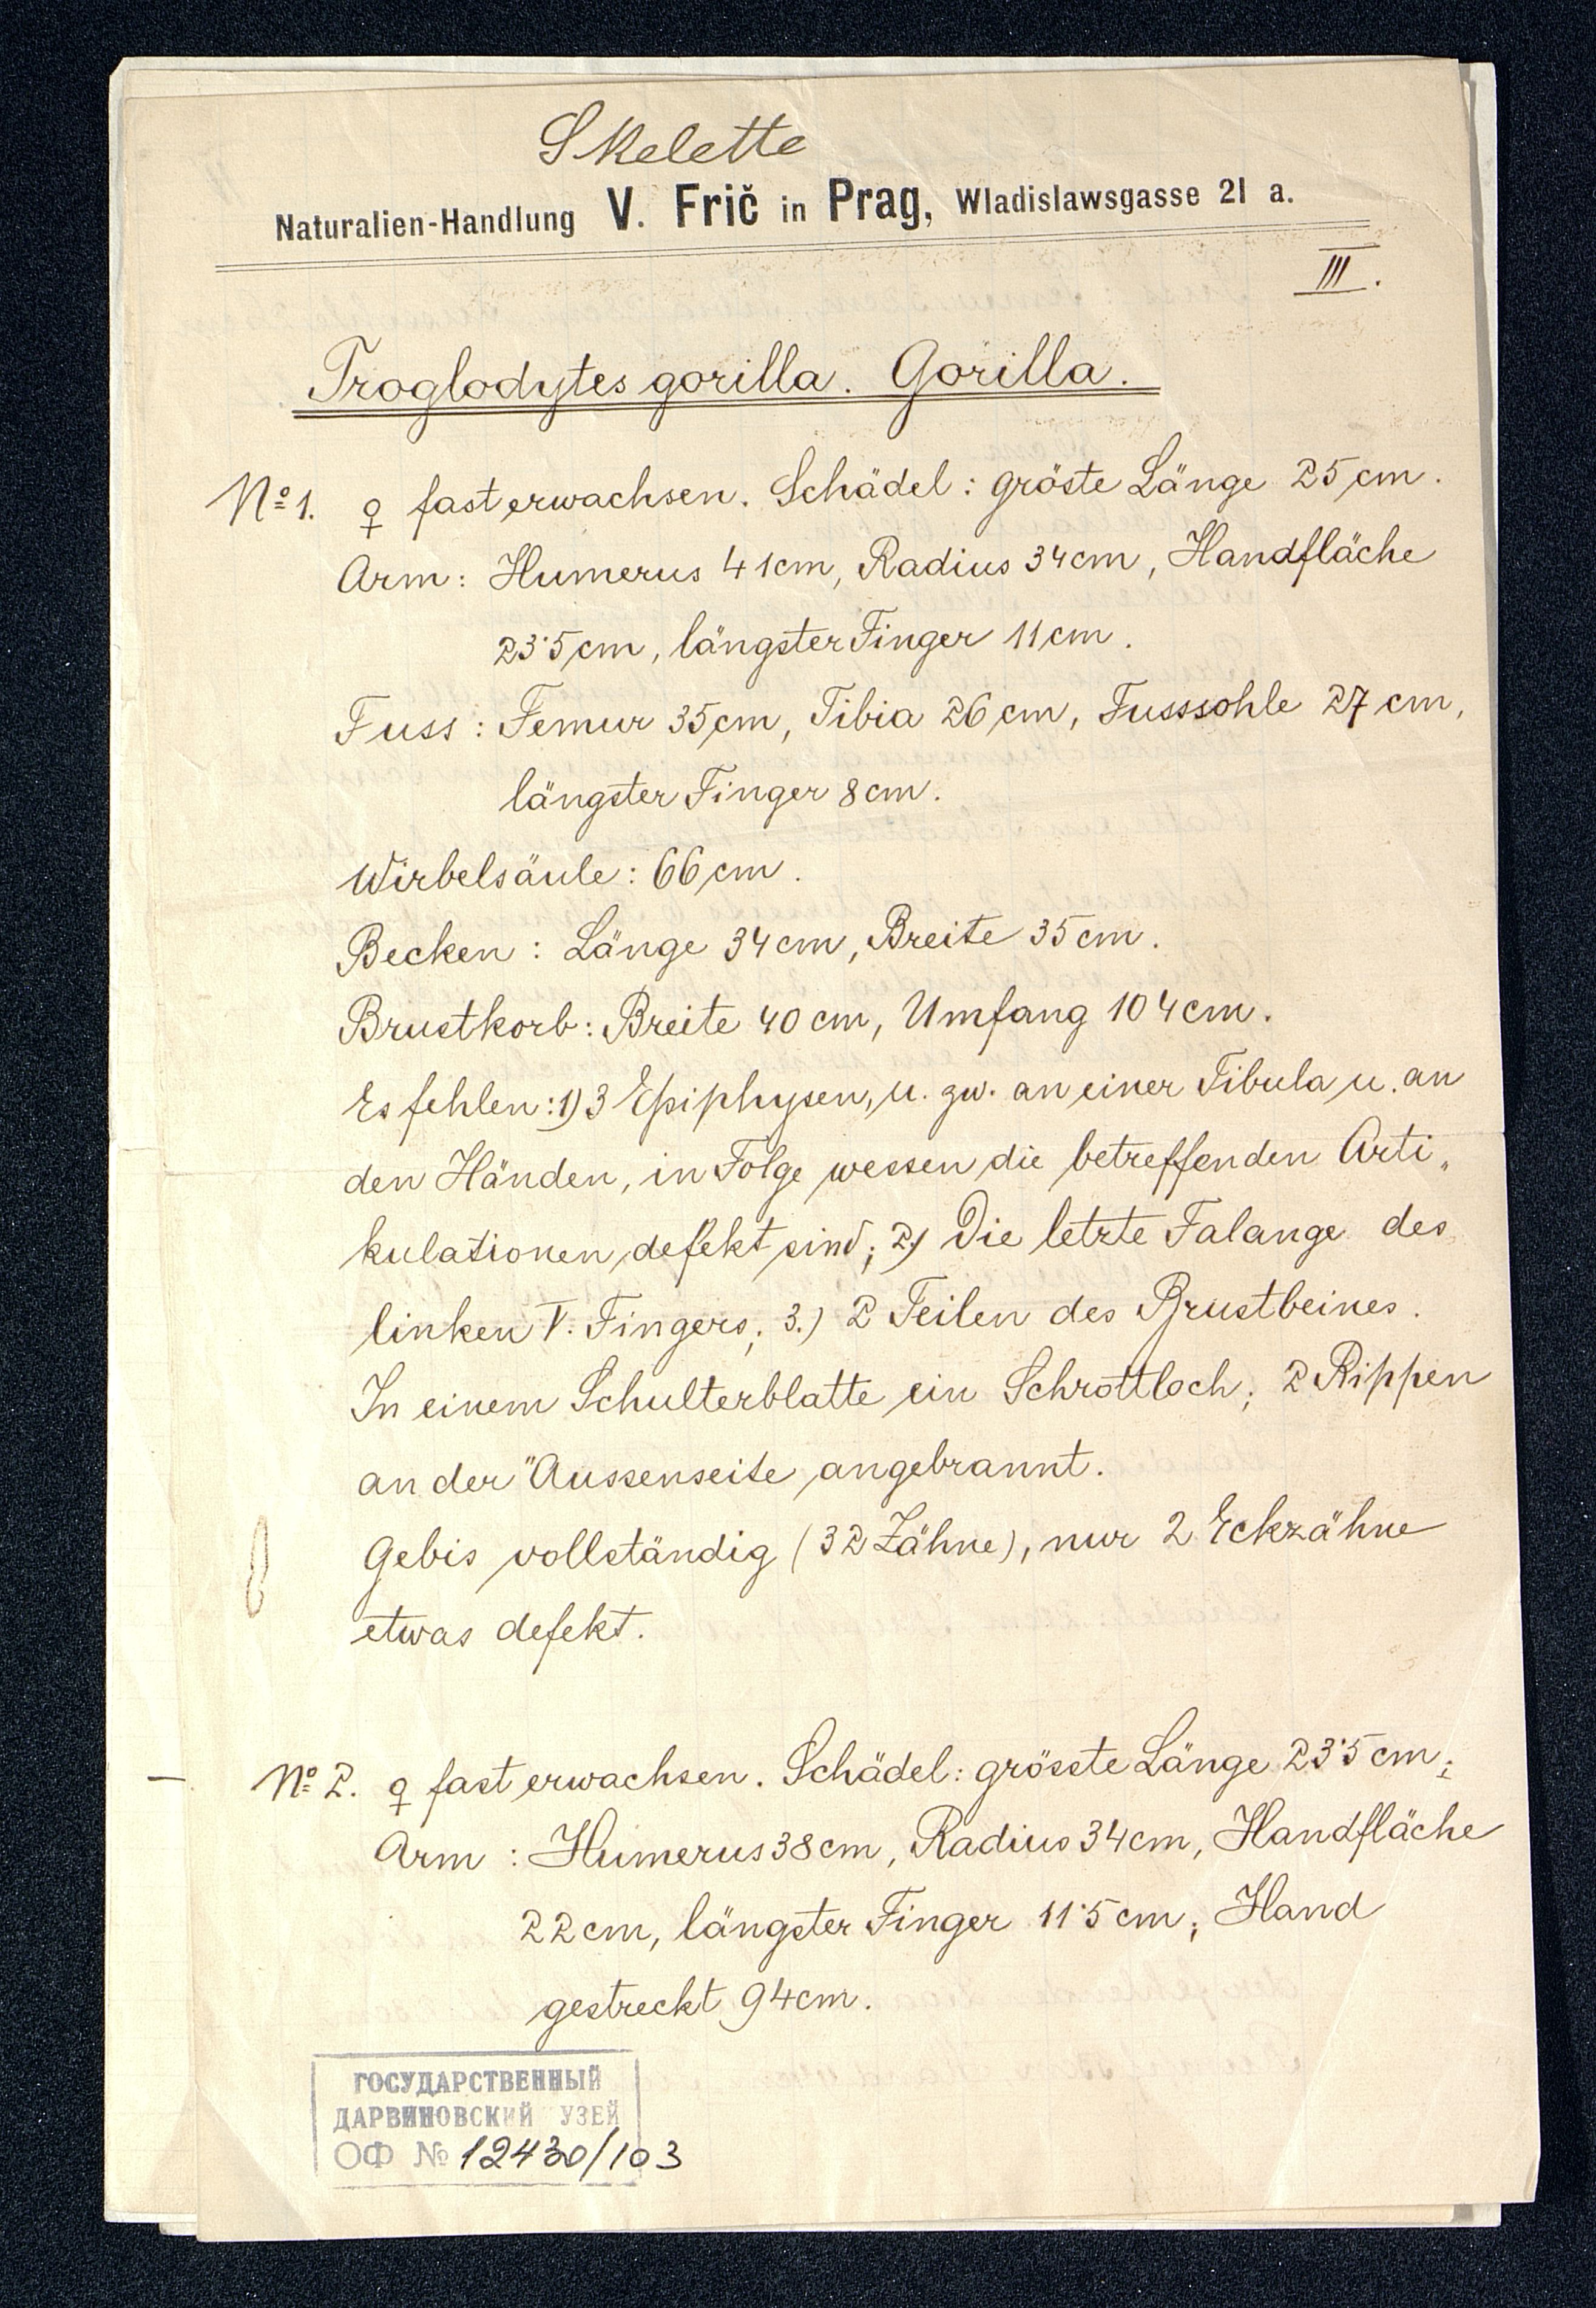 Skelette
Naturalien-Handlung V. Frič in Prag, Wladislawsgasse 21 a.
III.
Troglodytes gorilla. Gorilla.
No 1. ♀ fast erwachsen. Schädel: gröste Länge 25 cm.
Arm: Humerus 41cm, Radius 34cm, Handfläche
23·5 cm, längster Finger 11 cm.
Fuss: Femur 35 cm, Tibia 26 cm, Fusssohle 27 cm,
längster Finger 8 cm.
Wirbelsäule: 66 cm.
Becken: Länge 34 cm, Breite 35 cm.
Brustkorb: Breite 40 cm, Umfang 104 cm.
Es fehlen: 1) 3 Epiphysen, u. zw. an einer Fibula u. an
den Händen, in Folge wessen die betreffenden Arti„
kulationen defekt sind; 2) Die letzte Falange des
linken V. Fingers; 3.) 2 Teilen des Brustbeines.
In einem Schulterblatte ein Schrottloch; 2 Rippen
an der Aussenseite angebrannt.
Gebis vollständig (32 Zähne), nur 2 Eckzähne
etwas defekt.
No 2. ♀ fast erwachsen. Schädel: grösste Länge 23·5 cm;
Arm: Humerus 38 cm, Radius 34 cm, Handfläche
22 cm, längster Finger 11·5 cm; Hand
gestreckt 94 cm.
ГОСУДАРСТВЕННЫЙ
ДАРВИНОВСКИЙ УЗЕЙ
ОФ № 12430/103